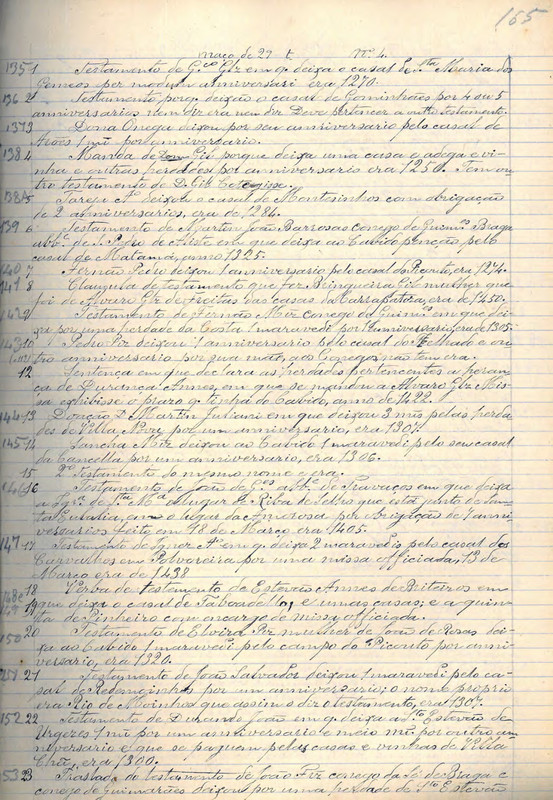 155
Maço de 29 t Nº 4.
135 1 Testamento de G.co Glz em q. deixa o casal de S.ta Maria dos
Gemeos por modum anniversari era 1270.
136 2 Testamento porq. deixão o casal de Gominhães por 4 ou 5
anniversarios nem diz era nem dia. Deve pertencer a outro testamento.
137 3 Dona Onega deixou por seu anniversario pelo casal de
Arões 1 mā por anniversario.
138 4 Manda de Dom Gil porque deixa uma casa e adega e vi-
nha e outras herdades por anniversario era 1250. Tem ou-
tro testamento de D. Gil
138 5 Tareja A.º deixou o casal de Montesinhos com obrigação
de 2 anniversarios, era de 1284.
139 6 Testamento de Martim João Barrosas Conego de Guim.es Braga
abb. de S. Pedro de em que deixa ao Cabido penção pelo
casal de Matamá, anno 1325.
140 7 Fernão Pedro deixou 1 anniversario pelo casal do Picouto, era 1274.
141 8 Clausula de testamento que fez Bringueira Gil mulher que
foi de Alvaro Glz de Freitas das casas da Carrapatosa, era de 1450.
142 9 Testamento de Fernão Miz conego de Guim.es em que dei-
xa por uma herdade da Costa 1 maravedi por 1 anniversario, era de 1305.
143 10 Pedro Piz deixou 1 anniversario pelo casal do Telhado e ou-
tro anniversario por sua mãe, aos Conegos não tem era.
12 Sentença em que declara as herdades pertencentes a heran-
ça de Durança Annes, em que se mandou a Alvaro Glz Mis-
sa exhibisse o prazo q. tinha do Cabido, anno de 1422.
144 13 Doação D. Martim Juliani em que deixou 3 mās pelas herda-
des de Villa Nova por um anniversario, era 1307.
145 14 Sancha Miz deixou ao Cabido 1 maravedi pelo seu casal
da Cancella por um anniversario, era 1306.
15 2.º Testamento do mesmo nome e era.
146 16 Testamento de João de G.es abb.e de Travaços em que deixa
a Igr.a de S.ta M.a d Riba de Selho que está junto de San-
ta Eulalia, o logar da Amorosa por obrigação de 7 anni-
versarios feito em 18 de Março era 1405.
147 17 Testamento de A.º em q. deixa 2 maravedis pelo casal dos
Carvalhos em Polvoreira por uma missa officiada, 13 de
Março era de 1438
148 18 Verba de testamento de Estevão Annes de Briteiros em
149 19 que deixa o casal de Taboadello, e umas casas, e a quin-
tã de Pinheiro com encargo de missa officiada.
150 20 Testamento de Elvira Piz mulher de João de Rosas dei-
xa ao Cabido 1 maravedi pelo campo do Picouto por anni-
versario, era 1320.
151 21 Testamento de João Salvador deixou 1 maravedi pelo ca-
sal de Redemoinhos por um anniversario; o nome proprio
era Rio de Moinhos que assim o diz o testamento, era 1307.
152 22 Testamento de Durando João em q. deixa a S.to Estevão de
Urgeses 1 mā por um anniversario e meio mā por outro an-
niversario e que se paguem pelas casas e vinhas de Villa
Chã, era 1300.
153 23 Traslado do testamento de João Piz conego da Sé de Braga e
conego de Guimarães deixou por uma herdade de S.to Estevão